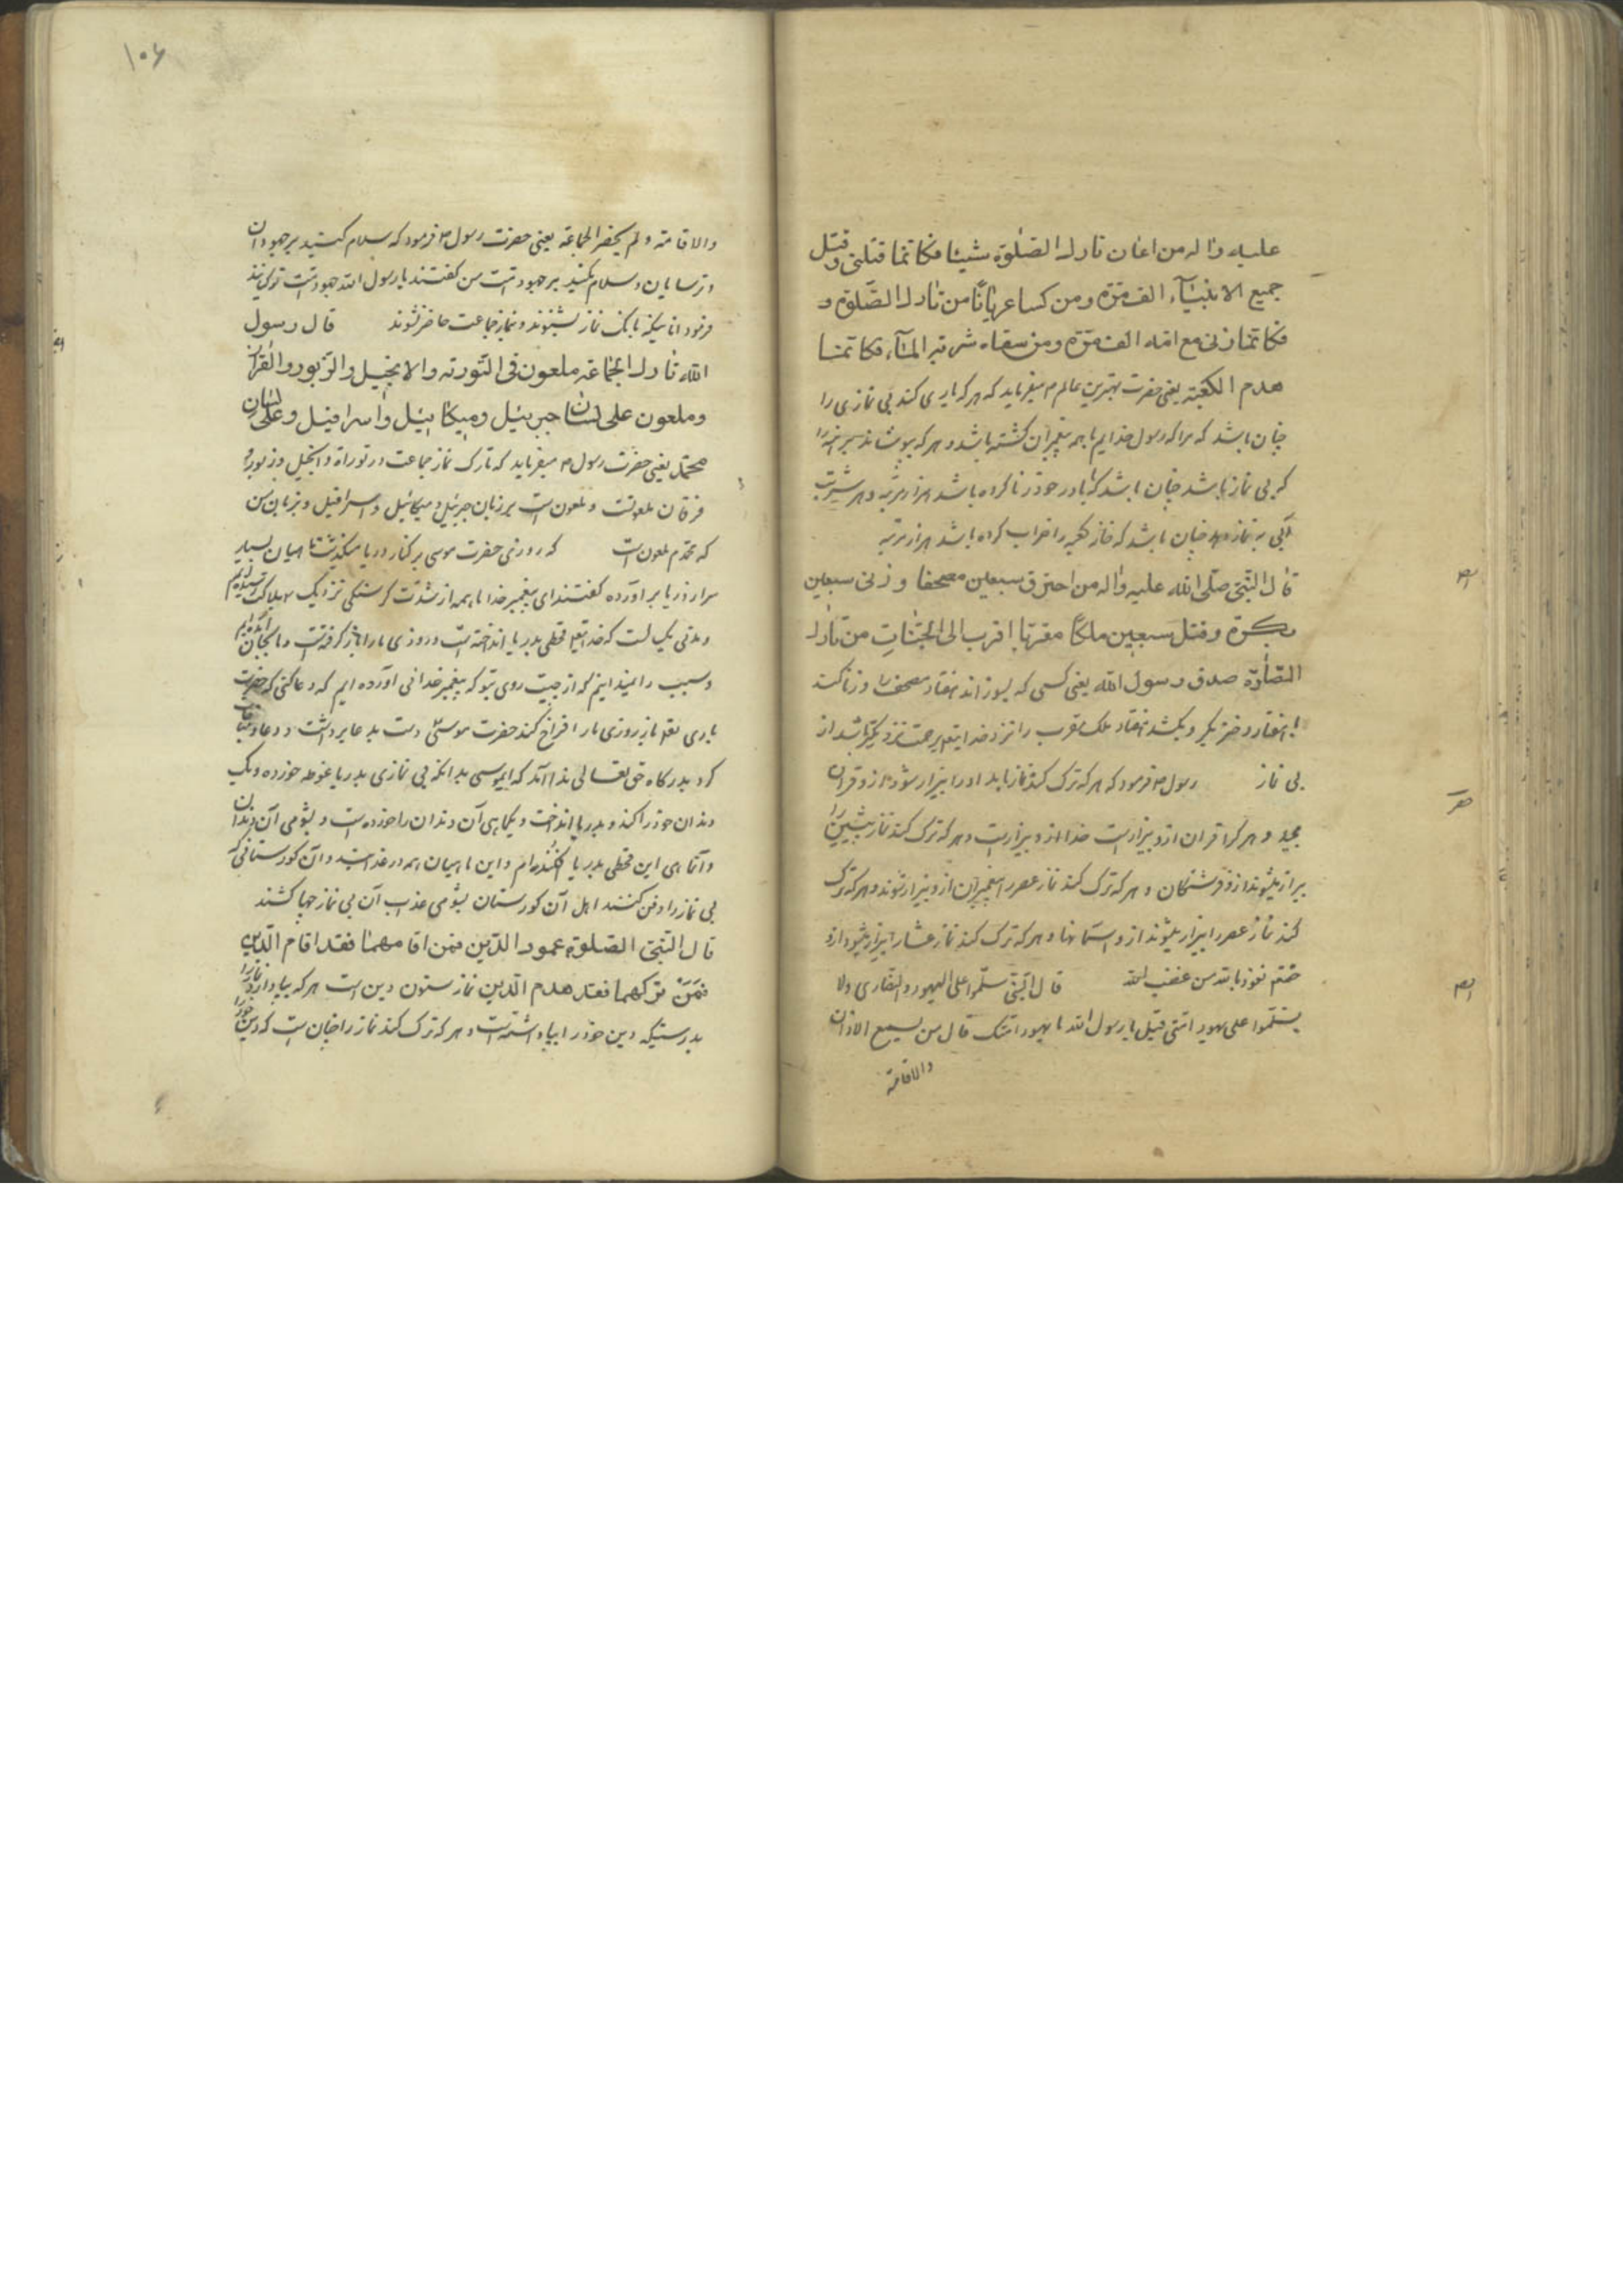 علیه واله من اعان تارك الصلوة شیئا فکانما قتلنی و قتل
جمیع الانبیآء الف مرّة ومن کسا عریانًا من تارك الصّلوة و
فکانما زنی مع امّه الف مرّة ومن سقاه شربته المآء فکانما
هدم الکعبة یعنی حضرت بهترین عالم م میفرماید که هر که یاری کند بی نمازی را
چنان باشد که مرا که رسول خدایم با همه پیغمبران کشته باشد و هر که بپوشاند برهنه را
که بی نماز باشد چنان باشد که با مادر خود زنا کرده باشد هزار مرتبه و هر شربت
آبی به نماز دهد چنان باشد که خانه کعبه را خراب کرده باشد هزار مرتبه
قال النّبی صلّی الله علیه واله من احترق سبعین مصحفا و زنی سبعین
بکرة وقتل سبعین ملکًا مقربا اقرب الی الجنّات من تارك
الصّلوة صدق رسول الله یعنی کسی که بسوزاند هفتاد مصحف را و زنا کند
با هفتاد دختر بکر و بکشد هفتاد ملک مقرب را نزد خدایتعه برحمت نزدیکتر باشد از
بی نماز رسول م فرمود که هر که ترک کند نماز بامداد را بیزار شود ازو قران
مجید و هر که را قران ازو بیزارست خدا ازو بیزارست و هر که ترک کند نماز پیشین را
بیزار میشوند ازو فرشتکان و هر که ترک کند نماز عصر را پیغمبران ازو بیزار شوند و هر که ترک
کند نماز عصر را بیزار میشوند ازو آسمانها و هر که ترک کند نماز عشا را بیزار میشود ازو
ختم نعوذ بالله من غضب الله قال النّبی سلّموا علی الیهود والنصاری ولا
یسلّموا علی یهود امّتی قیل یا رسول الله ما یهود امّتک قال من یسمع الاذان
والاقامة
۱۰۶
والاقامة ولم یحضر الجماعة یعنی حضرت رسول م فرمود که سلام کنید بر جهودان
و ترسایان و سلام مکنید بر جهود امّت من کفتند یا رسول الله جهود امّت تو کیانند
فرمود انانیکه بانک نماز بشنوند و بنماز جماعت حاضر نشوند قال رسول
الله تارك الجماعة ملعون فی التّوریة والانجیل والزّبور والقرآن
وملعون علی لسان جبرئیل ومیکائیل واسرافیل وعلی لسان
محمّد یعنی حضرت رسول م میفرماید که تارک نماز جماعت در توراة و انجیل و زبور و
فرقان ملعونست و ملعون است بر زبان جبرئیل و میکائیل و اسرافیل و بزبان من
که محمّدم ملعون است که روزی حضرت موسی بر کنار دریا میکذشت ماهیان بسیار
سر از دریا بر آورده کفتند ای پیغمبر خدا ما همه از شدّت کرسنکی نزدیک بهلاکت رسیده ایم
و مدّتی یک است که خدایتعه قحطی بدریا انداخته است و روزی ما را باز کرفته است و ما بجان آمده ایم
و سبب را نمیدانیم که از چیست روی بتو که پیغمبر خدائی آورده ایم که دعا کنی که حضرت
باری تعه باز روزی ما را فراخ کند حضرت موسیٰ دست بدعا برداشت و دعا و مناجات
کرد بدرکاه حق تعالی ندا آمد که ای موسی بدانکه بی نمازی بدریا غوطه خورده و یک
دندان خود را کنده و بدریا انداخت و یک ماهی آن دندان را خورده است و بشومی آن دندان
و آن ماهی این قحطی بدریا افکنده ام و این ماهیان همه در عذابند و آن کورستانی که
بی نماز را دفن کنند اهل آن کورستان بشومی عذاب آن بی نماز جفا کشند
قال النّبی الصّلوة عمود الدّین فمن اقامهما فقد اقام الدّین
فمن ترکهما فقد هدم الدّین نماز ستون دین است هر که بپا دارد نماز را
بدرستیکه دین خود را بپا داشته است و هر که ترک کند نماز را چنان است که دین خود را